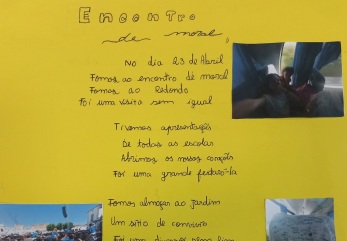 Encontro
de moral
No dia 23 de Abril
Fomos ao encontro de moral
Fomos ao Redondo
Foi uma visita sem igual
Tivemos apresentações
De todas as escolas
Abrimos os nossos corações
Foi uma grande
Fomos almoçar ao jardim
Um sitio de convivio
Foi um